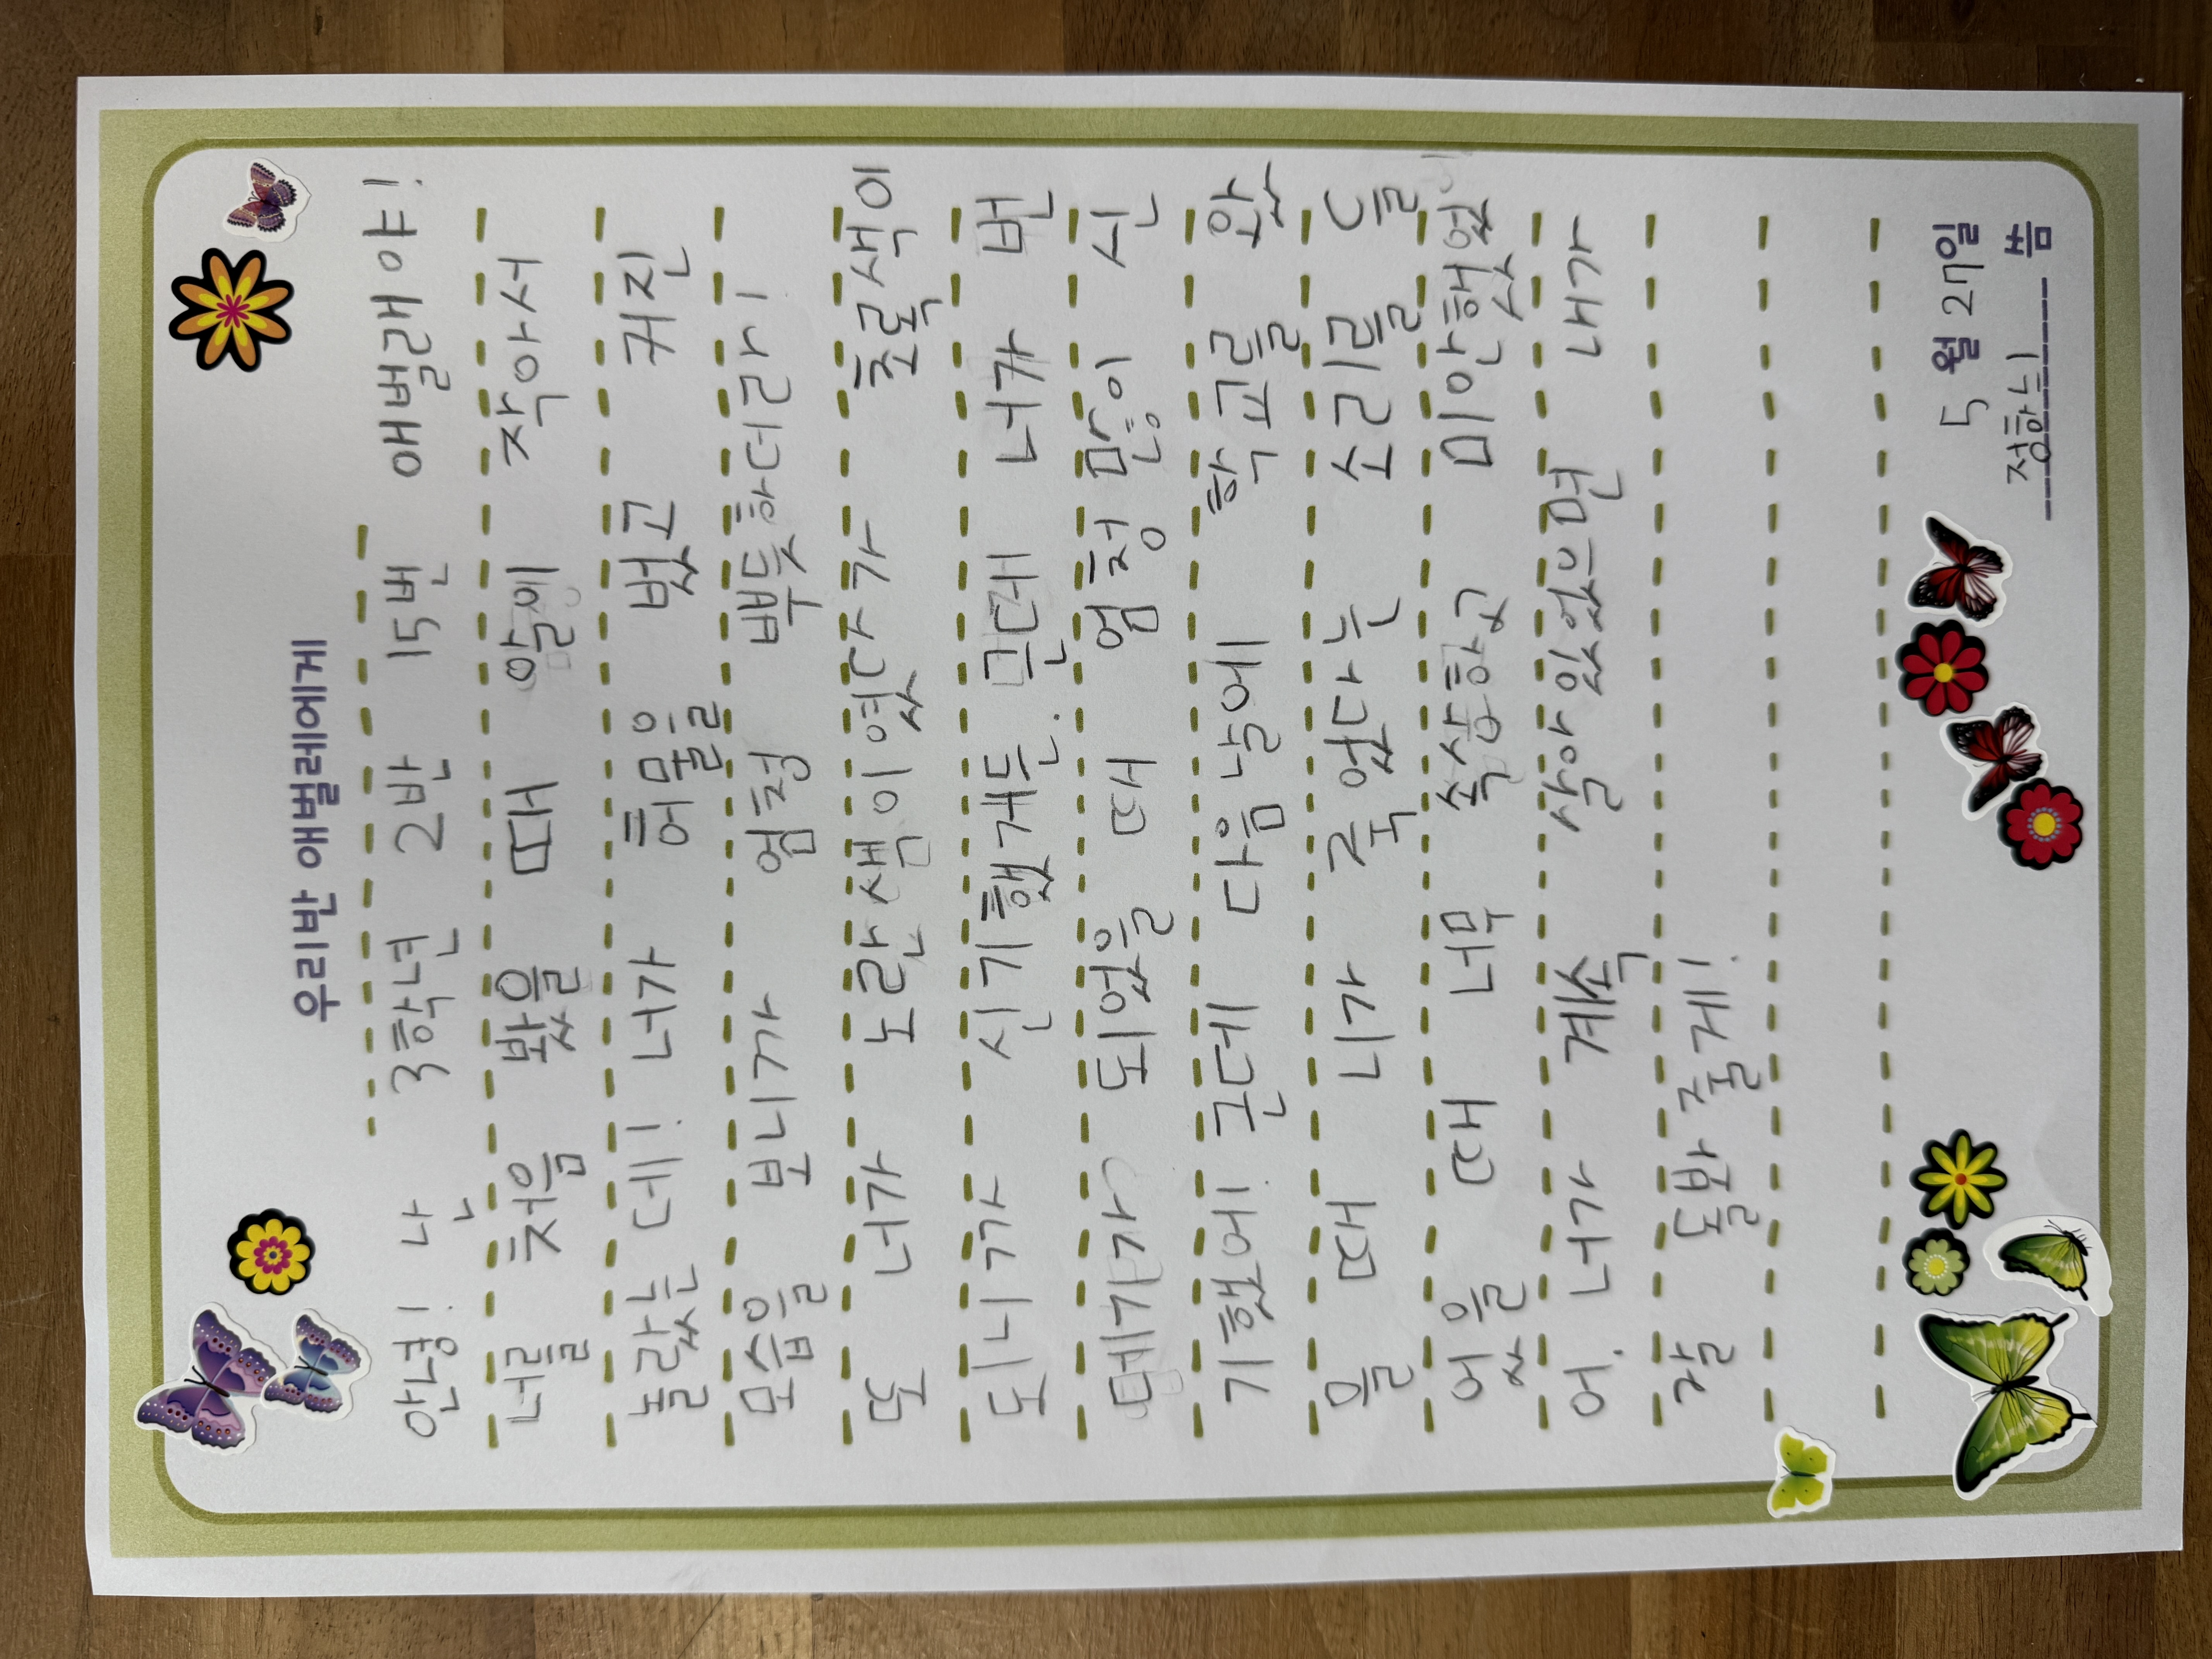 우리반 애벌레에게
안녕! 난 3학년 2반 15번 애벌래야!
너를 처음 봤을 때 알에 작아서
놀랐는데! 너가 허물을 벗고 커진
모습을 보니가 엄청 뿌듯하더라!
또 너가 노란샘이였다가 초록색이
도니까 신기했거든. 근데 너가 번
데기가 되었을 때 엄청 많이 신
기했어! 근데 다음날에 학교를 왔
을 때 니가 죽었다는 소리를 들
었을 때 너무 속상하고 미안했었
어. 너가 계속 살아있었으면 내가
잘 돌봐줄게!
5월 27일
정한느 씀